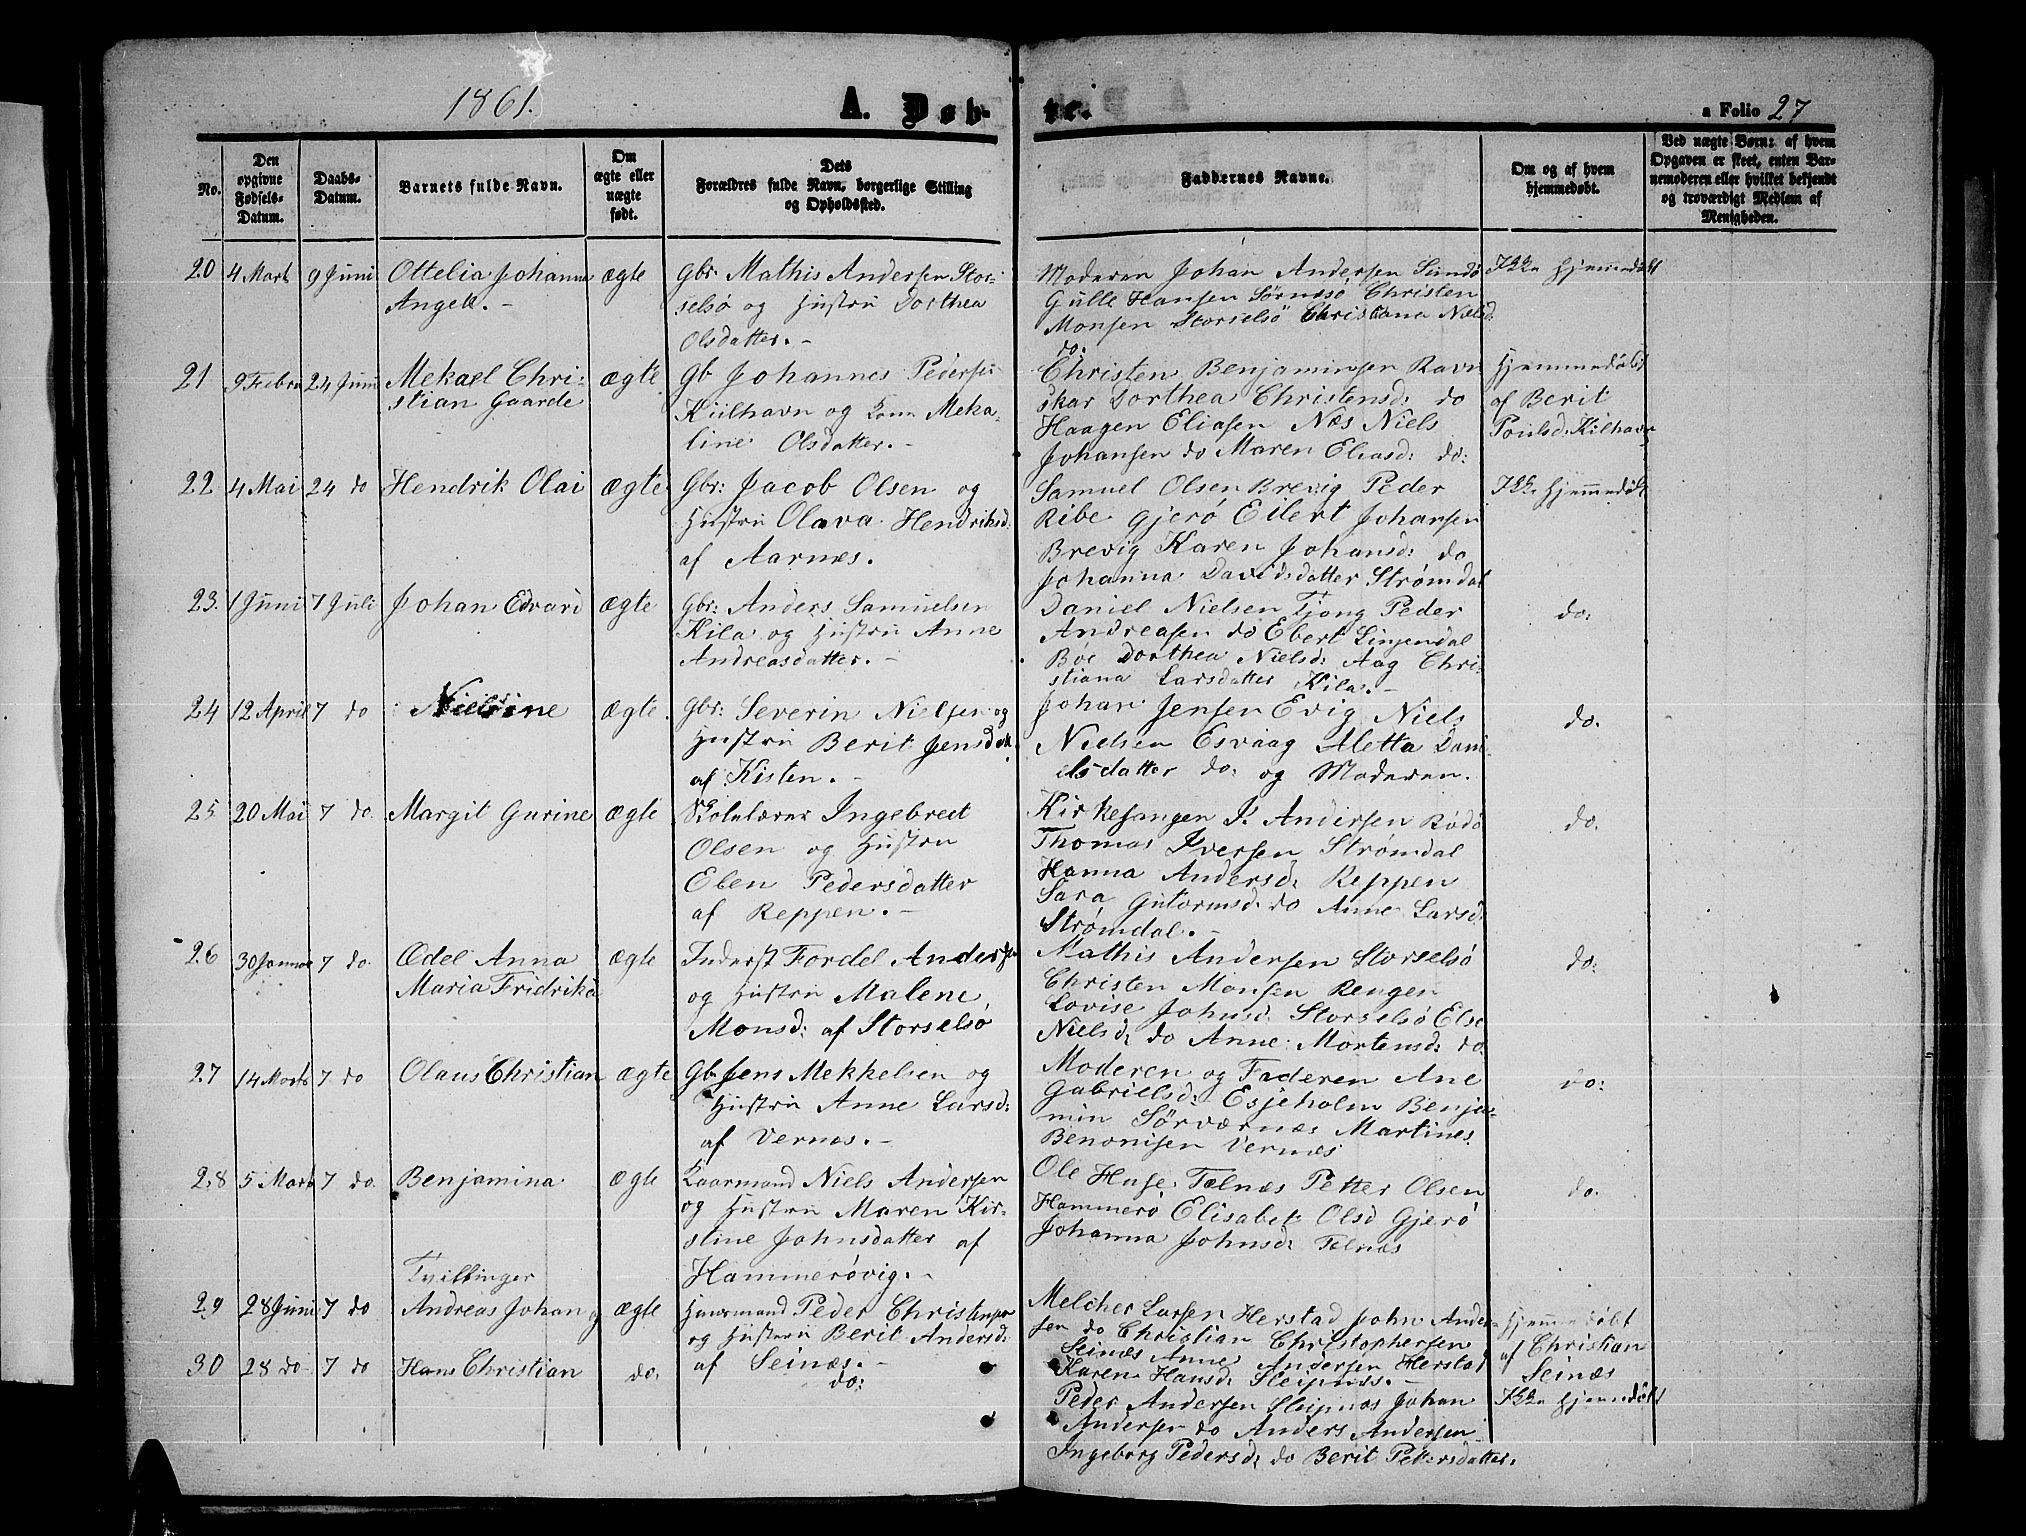 1861.
A. Døb-
te.
a Folio 27
No.
Den opgivne Fødsels-Datum.
Daabs-Datum.
Barnets fulde Navn.
Om ægte eller uægte født.
Dets Forældres fulde Navn, borgerlige Stilling og Opholdssted.
Faddernes Navne.
Om og af hvem hjemmedøbt.
Ved uægte Børn: af hvem Opgaven er skeet, enten Barnemoderen eller hvilket bekjendt og troværdigt Medlem af Menigheden.
20 4 Marts 9 Juni Ottelia Johanna ægte Gbr: Mathis Andersen Stor-
Angell. - selsø og Hustru Dorthea
Olsdatter. -
Moderen Johan Andersen Sundø Ikke hjemmedøbt
Gulle Hansen Sørnesø Christen
Monsen Storselsö Christiana Nielsd:
do:
21 9 Febru 24 Juni Mekael Chri- ægte Gb Johannes Pedersen
stian Gaarde Kiilhavn og Kone Meka-
line Olsdatter. -
Christen Benjaminsen Ravn Hjemmedöbt
skar Dorthea Christensd: do af Berit
Haagen Eliasen Næs Niels Poulsd: Kilhavn
Johansen do Maren Eliasd: do:
22 4 Mai 24 do Hendrik Olai ægte Gbr: Jacob Olsen og
Hustru Olava Hendriksd:
af Aarnæs.
Samuel Olsen Brevig Peder Ikke hjemmedöbt
Ribe Gjerö Eilert Johansen
Brevig Karen Johansd: do
Johanna Davidsdatter Strømdal
23. 1 Juni 7 Juli Johan Edvard ægte Gbr: Anders Samuelsen
Kila og Hustru Anne
Andreasdatter. -
Daniel Nielsen Tjong Peder do:
Andreasen do Ebert Linjendal
Böe Dorthea Nielsd: Aag Chri-
stiana Larsdatter Kila. -
24 12 April 7 do Nielsine ægte. Gbr: Severin Nielsen og
Hustru Berit Jensdatt
af Kisten. -
Johan Jensen Evig Niels do.
Nielsen Esvaag Aletta Dani-
elsdatter do: og Moderen.
25 20 Mai 7 do. Margit Gurine ægte Skolelærer Ingebregt
Olsen og Hustru
Elen Pedersdatter
af Reppen. -
Kirkesanger J. Andersen Rödö do.
Thomas Iversen Strømdal
Hanna Andersd: Reppen
Sara Gutormsd: do Anne Larsd:
Strømdal. -
26 30 Januar 7 do. Œdel Anna ægte Inderst Fordel Andersen
Maria Fridrika og Hustru Malene
Monsd: af Storselsö
Mathis Andersen Storselsö do:
Christen Monsen Rengen
Lovise Johnsd: Storselsö Else
Nielsd: do Anne Mortensd: do.
27 14 Marts 7 do Olaus Christian ægte Gb Jens Mekkelsen og
Hustru Anne Larsd:
af Vernæs. -
Moderen og Faderen Ane do:
Gabrielsd: Esjeholm Benja-
min Sörværnæs Martines
Benonisen Vernæs
28 5 Marts 7 do. Benjamina ægte Kaarmand Niels Andersen
og Hustru Maren Kir-
stine Johnsdatter af
Hammerøvig. -
Ole Huse Telnæs Petter Olsen do.
Hammerö Elisabet Olsd Gjerö
Johanna Johnsd: Telnæs
Tvillinger
29 28 Juni 7 do Andreas Johan og ægte Huusmand Peder Christensen
og Hustru Berit Andersd:
Melcher Larsen Herstad John Ander- Hjemmedøbt
sen do Christian Christophersen af Christian
Seinæs Anne Andersen Herstad Seinæs
Karen Hansd: Sleipnæs. -
30 28 do 7 do Hans Christian do: af Seinæs. -
do:
Peder Andersen Sleipnæs Johan Ikke hjemmedöbt
Andersen do Anders Andersen
Ingeborg Pedersd: do Berit Pettersdatter.